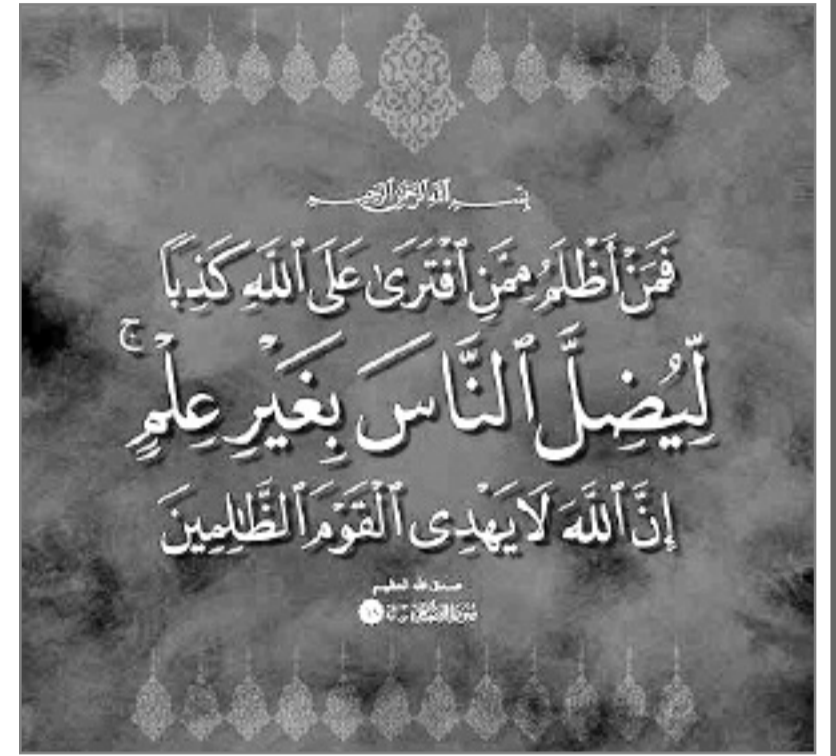 بِسْمِ ٱللَّهِ ٱلرَّحْمَٰنِ ٱلرَّحِيمِ
فَمَنْ أَظْلَمُ مِمَّنِ ٱفْتَرَىٰ عَلَى ٱللَّهِ كَذِبًا
لِّيُضِلَّ ٱلنَّاسَ بِغَيْرِ عِلْمٍ ۚ
إِنَّ ٱللَّهَ لَا يَهْدِى ٱلْقَوْمَ ٱلظَّٰلِمِينَ
صدق الله العظيم